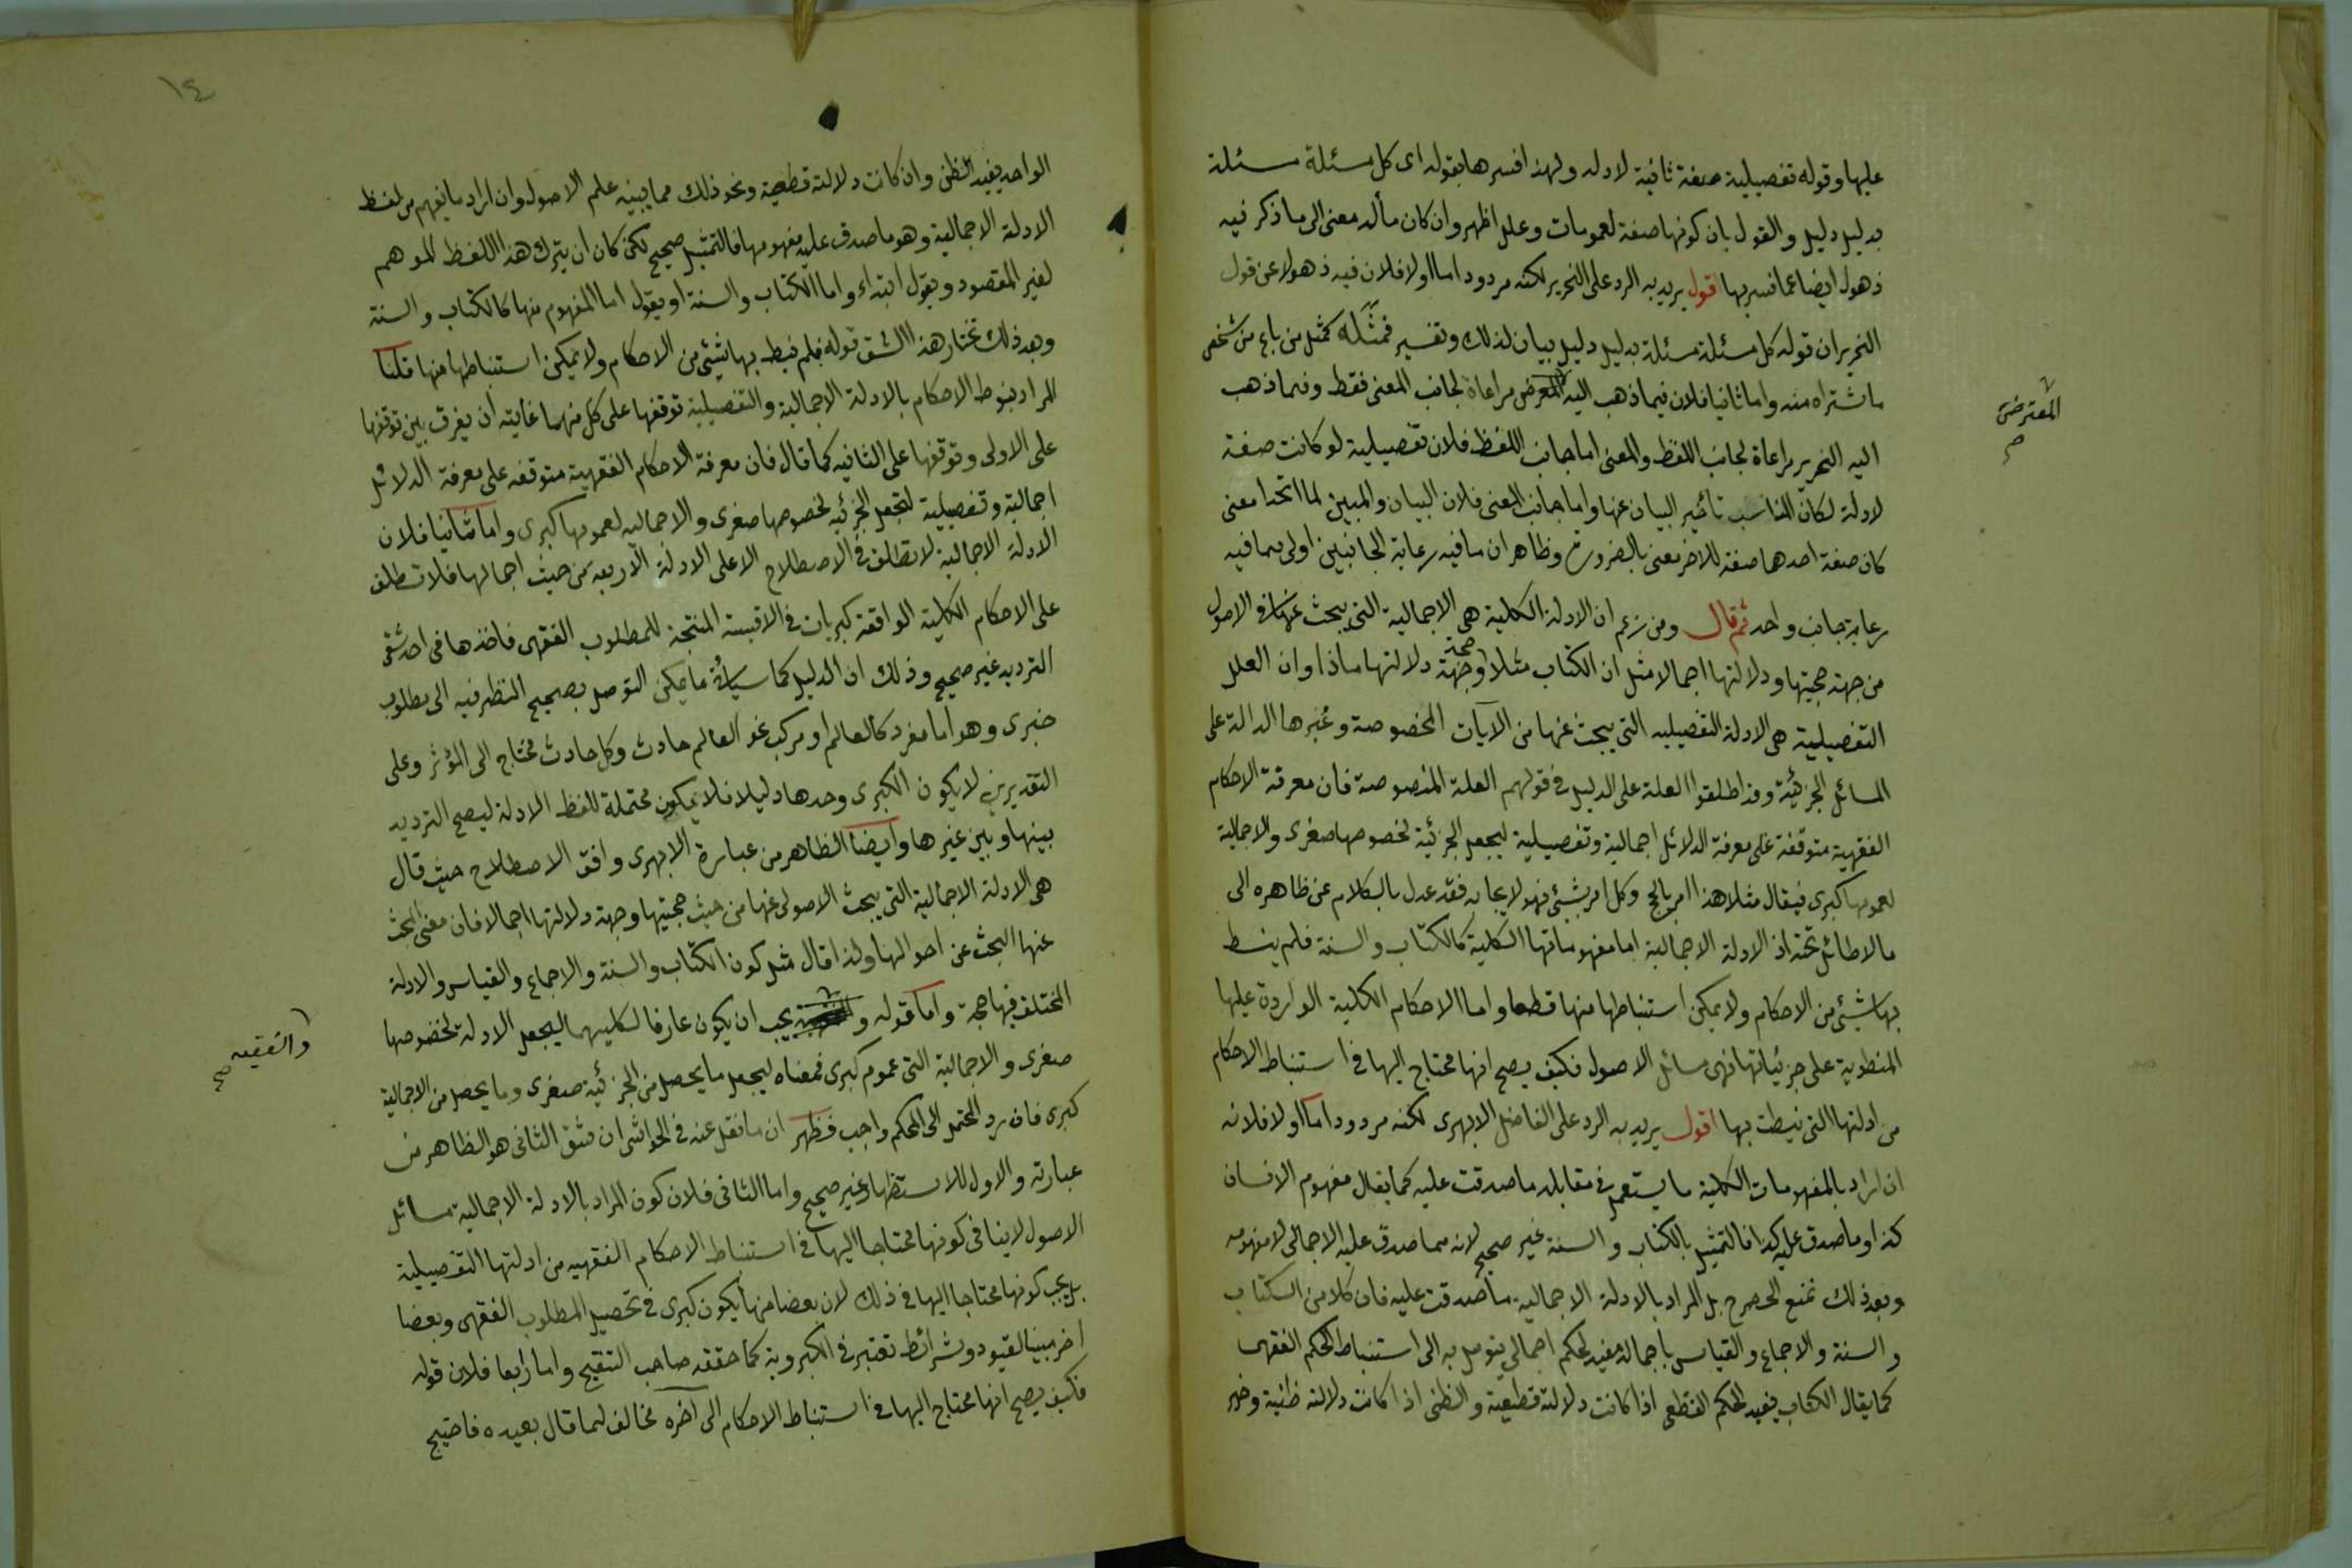 عليها وقوله تفصيلية صفة ثانية لادله ولهذا فسرها بقوله اى كل مسئلة مسئلة
بدليل دليل والقول بان كونها صفة لعمومات وعلل اظهر وان كان مأله معنى الى ما ذكر فيه
ذهول ايضا عما فسر بها قول يريد به الرد على النحرير لكنه مردود اما اولا فلان فيه ذهولا عن قول
النحرير ان قوله كل مسئلة مسئلة بدليل دليل بيان لذلك وتفسير فمثله كمثل من باع من شخص
ما شتراه منه واما ثانيا فلان فيما ذهب اليه مراعاة لجانب المعنى فقط وفيما ذهب
المعترض
صح
اليه النحرير مراعاة لجانب اللفظ والمعنى اما جانب اللفظ فلان تفصيلية لو كانت صفة
لادلة لكان المناسب تأخير البيان عنها واما جانب المعنى فلان البيان والمبين لما اتحدا معنى
كان صفة احدهما صفة للاخر معنى بالضرورة وظاهر ان ما فيه رعاية الجانبين اولى مما فيه
رعاية جانب واحد ثم قال ومن زعم ان الادلة الكلية هى الاجمالية التى يبحث عنها فى الاصول
من جهة حجيتها ودلالتها اجمالا مثل ان الكتاب مثلا حجة وجهة دلالتها ماذا وان العلل
التفصيلية هى الادلة التفصيليه التى يبحث عنها من الآيات المخصوصة وغيرها الدالة على
المسائل الجزئية وقد اطلقوا العلة على الدليل فى قولهم العلة المنصوصة فان معرفة الاحكام
الفقهية متوقفة على معرفة الدلائل اجمالية وتفصيلية ليجعل الجزئية لخصوصها صغرى والاجمالية
لعمومها كبرى فيقال مثلا هذا امر بالحج وكل امر بشئ فهو لايجابه فقد عدل بالكلام عن ظاهره الى
ما لا طائل تحته اذ الادلة الاجمالية اما مفهوماتها الكلية كالكتاب والسنة فلم ينط
بها شيئ من الاحكام ولا يمكن استنباطها منها قطعا واما الاحكام الكلية الواردة عليها
المنطوية على جزئياتها فهى مسائل الاصول فكيف يصح انها محتاج اليها فى استنباط الاحكام
من ادلتها التى نيطت بها اقول يريد به الرد على الفاضل الابهرى لكنه مردود اما اولا فلانه
ان اراد بالمفهومات الكلية ما يستعمل فى مقابلة ما صدقت عليه كما يقال مفهوم الانسان
كذا وما صدق عليه كذا فالتمثيل بالكتاب والسنة غير صحيح لانه مما صدق عليه الاجمالى لا مفهومه
وبعد ذلك نمنع الحصر بل المراد بالادلة الاجمالية ما صدقت عليه فان كلا من الكتاب
والسنة والاجماع والقياس باجماله مفيد لحكم اجمالى يتوصل به الى استنباط الحكم الفقهى
كما يقال الكتاب يفيد الحكم القطعى اذا كانت دلالته قطعية والظنى اذا كانت دلالته ظنية وخبر
١٤
الواحد يفيد الظن وان كانت دلالته قطعية ونحو ذلك مما يبينه علم الاصول وان اراد ما يفهم من لفظ
الادلة الاجمالية وهو ما صدق عليه مفهومها فالتمثيل صحيح لكن كان ان يترك هذا اللفظ الموهم
لغير المقصود ويقول ابتداء واما الكتاب والسنة او يقول اما المفهوم منها كالكتاب والسنة
وبعد ذلك نختار هذا الشق قوله فلم ينط بها شيئ من الاحكام ولا يمكن استنباطها منها قلنا
المراد بنوط الاحكام بالادلة الاجمالية والتفصيلية توقفها على كل منهما غايته ان يفرق بين توقفها
على الاولى وتوقفها على الثانيه كما قال فان معرفة الاحكام الفقهية متوقفه على معرفة الدلائل
اجمالية وتفصيلية لتجعل الجزئيه لخصوصها صغرى والاجماليه لعمومها كبرى واما ثانيا فلان
الادلة الاجمالية لا تطلق فى الاصطلاح الا على الادلة الاربعه من حيث اجمالها فلا تطلق
على الاحكام الكلية الواقعة كبريات فى الاقيسة المنتجة للمطلوب الفقهى فاخذها فى احد شقى
الترديد غير صحيح وذلك ان الدليل كما سيأتى ما يمكن التوصل بصحيح النظر فيه الى مطلوب
خبرى وهو اما مفرد كالعالم او مركب نحو العالم حادث وكل حادث محتاج الى المؤثر وعلى
التقديرين لا يكون الكبرى وحدها دليلا فلا يكون محتملة للفظ الادلة ليصح الترديد
بينها وبين غيرها وايضا الظاهر من عبارة الابهرى وافق الاصطلاح حيث قال
هى الادلة الاجمالية التى يبحث الاصولى عنها من حيث حجيتها وجهة دلالتها اجمالا فان معنى البحث
عنها البحث عن احوالها ولذا قال مثل كون الكتاب والسنة والاجماع والقياس والادلة
المختلف فيها حجة واما قوله و يجب ان يكون عارفا لكليهما ليجعل الادلة لخصوصها
والفقيه
صح
صغرى والاجمالية التى عموم كبرى فمعناه ليجعل ما يحصل من الجزئية صغرى وما يحصل من الاجمالية
كبرى فان رد المحتمل الى المحكم واجب فظهر ان ما نقل عنه فى الحواشى ان شق الثانى هو الظاهر من
عبارته والاول للاستظهار غير صحيح واما الثانى فلان كون المراد بالادلة الاجمالية مسائل
الاصول لا ينافى كونها محتاجا اليها فى استنباط الاحكام الفقهيه من ادلتها التفصيلية
بل يجب كونها محتاجا اليها فى ذلك لان بعضا منها يكون كبرى فى تحصيل المطلوب الفقهى وبعضا
اخر مبينا لقيود وشرائط تعتبر فى الكبروية كما حققه صاحب التنقيح واما رابعا فلان قوله
فكيف يصح انها محتاج اليها فى استنباط الاحكام الى آخره مخالف لما قال بعيده فاحتيج